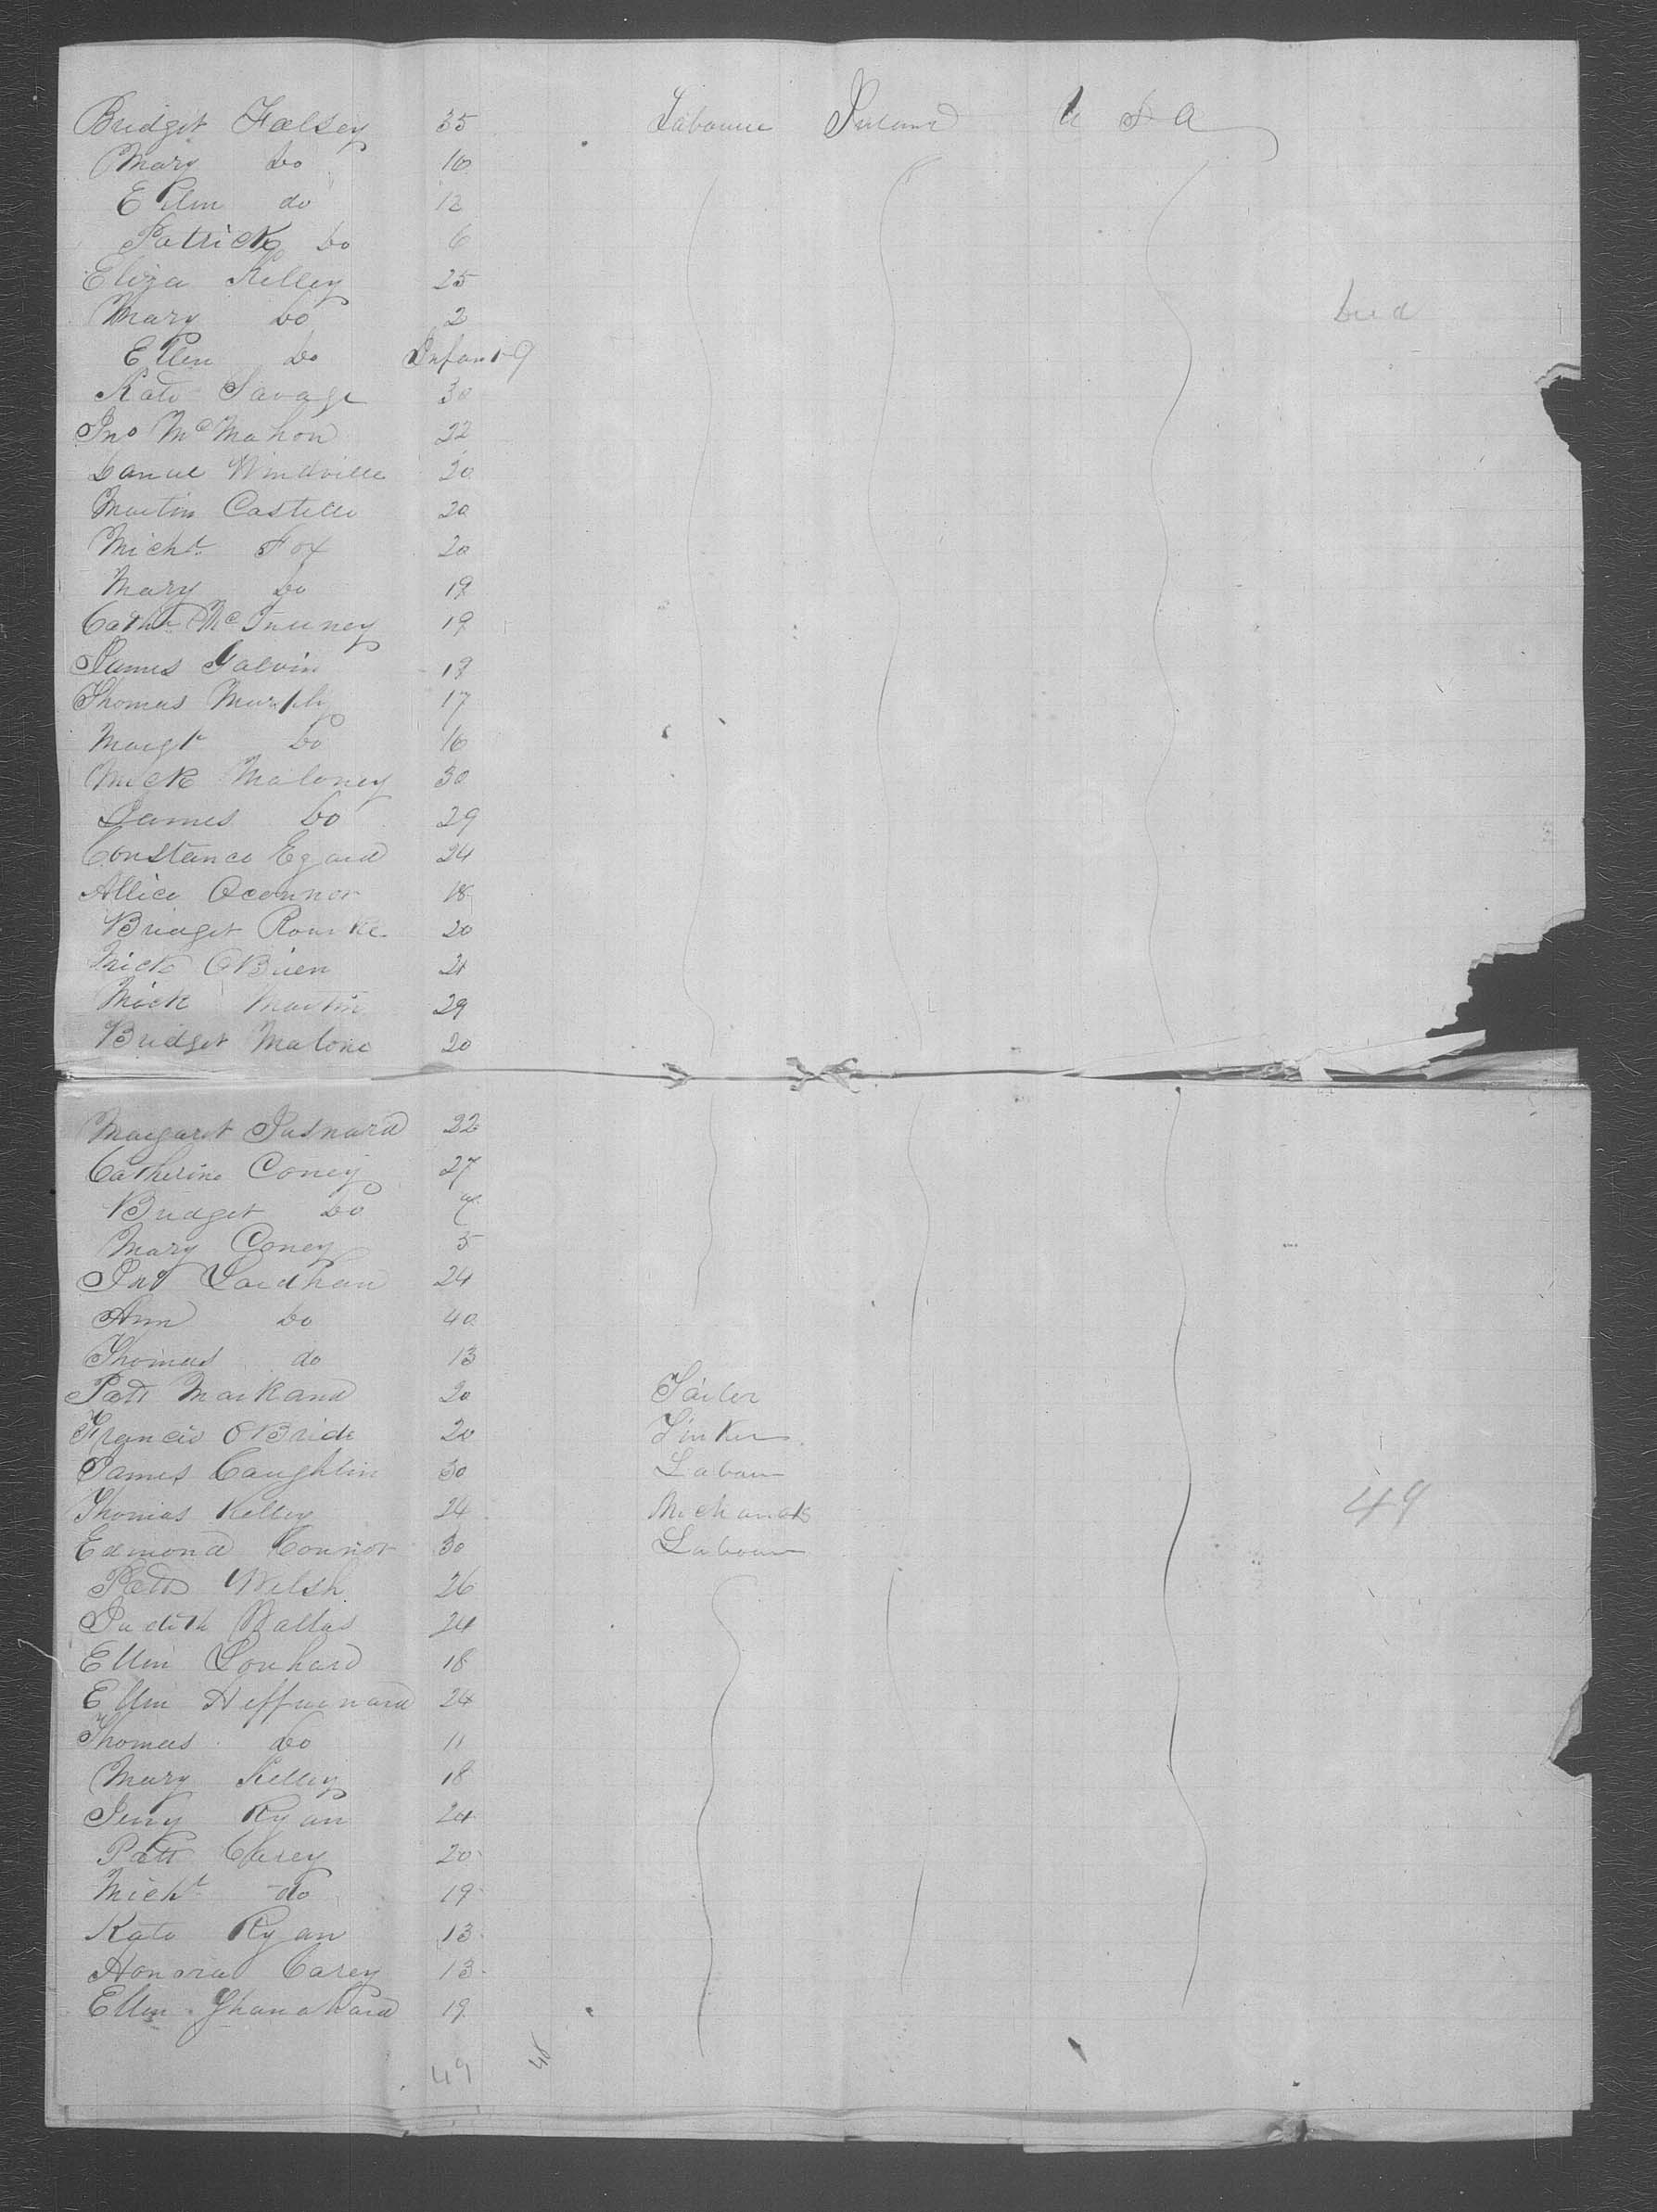 Bridget Falsey 35 Labourer Ireland U S A
Mary do 16
Ellen do 12
Patrick do 6
Eliza Kelley 25
Mary do 2 Died
Ellen do Infant 9
Kate Savage 30
Jno McMahon 22
Daniel Windville 20
Martin Castello 20
Michl Fox 20
Mary do 19
Cathn McInerney 19
James Galvin 19
Thomas Murphy 17
Margt do 16
Mick Maloney 30
James do 29
Constance Egard 24
Allice Oconnor 18
Bridget Rourke 20
Mick OBrien 21
Mick Martin 29
Bridget Malone 20
Margaret 22
Catherine Coney 27
Bridget do
Mary Coney 5
Jno 24
Ann do 40
Thomas do 13
Patt Markand 20 Tailor
Francis OBride 20 Tinker
James Caughlin 30 Labour
Thomas Kelley 24 Mechanick 49
Edmond Connor 30 Labour
Patt Welsh 26
Judith Wallas 24
Ellen Lonhard 18
Ellen Heffernard 24
Thomas do 11
Mary Kelley 18
Jerry Ryan 24
Patt Carey 20
Michl do 19
Kate Ryan 13
Honora Carey 13
Ellen Ghanahard 19
49 48